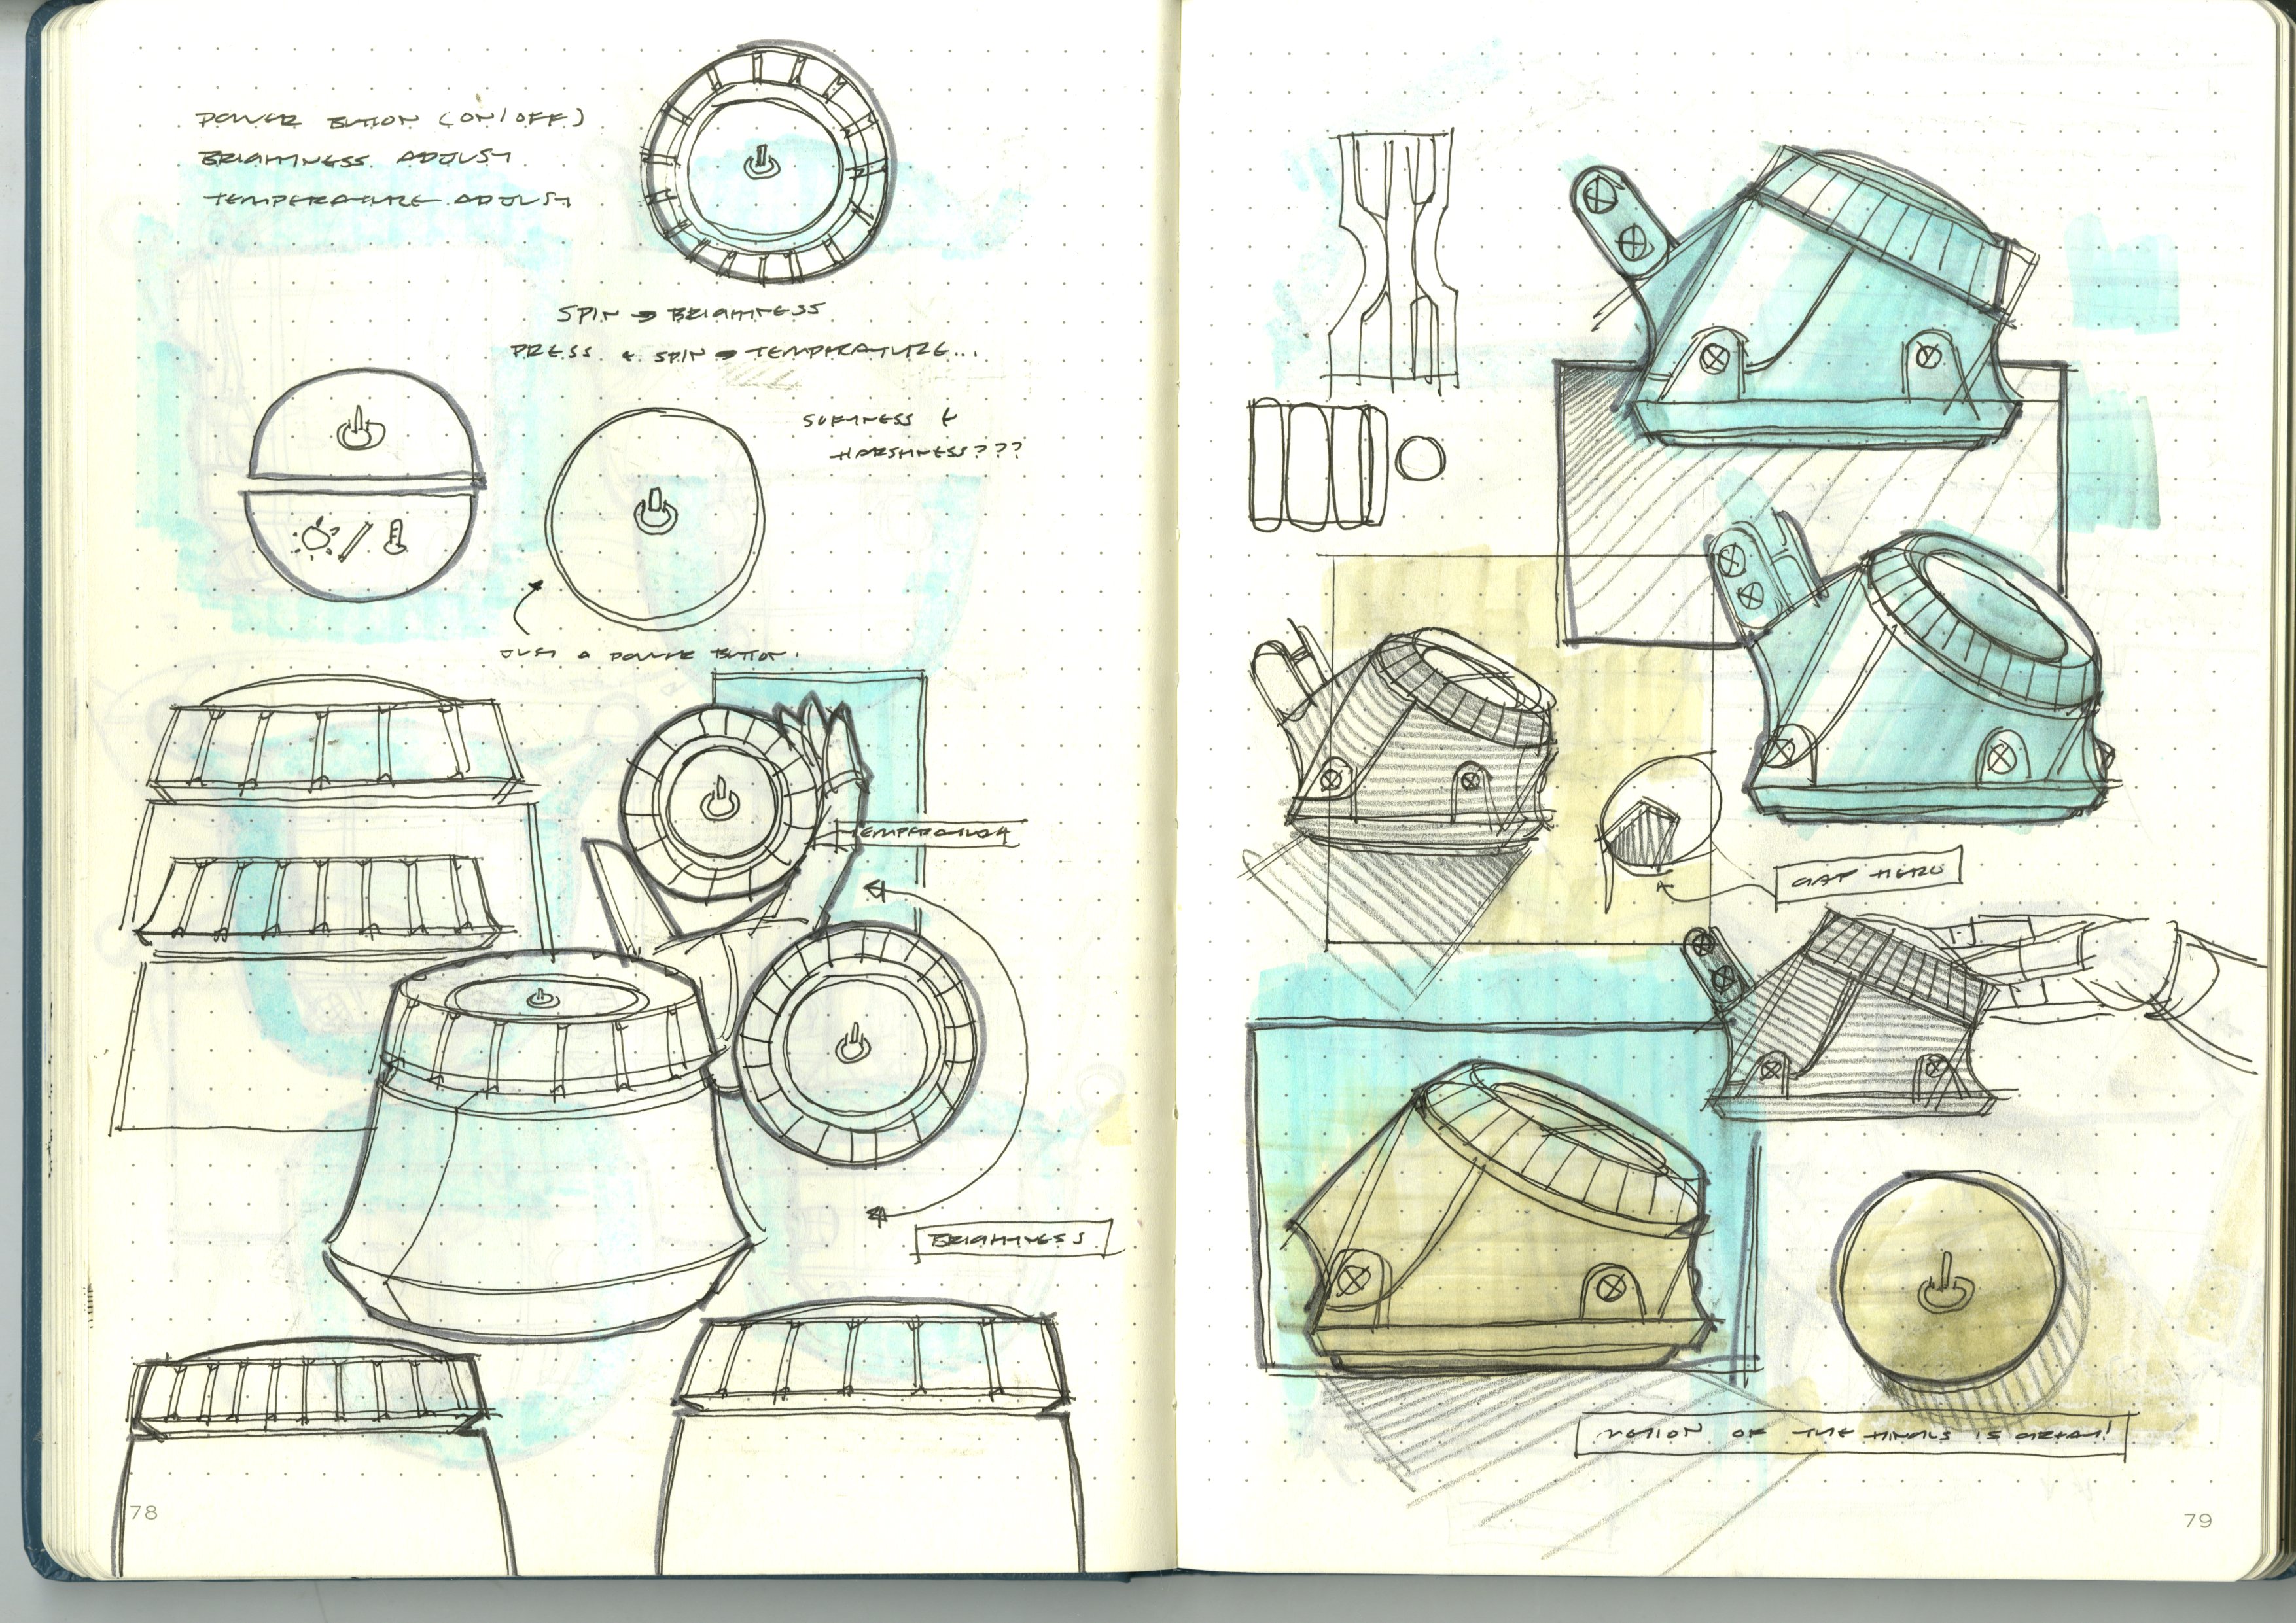 POWER BUTTON (ON/OFF)
BRIGHTNESS ADJUST
TEMPERATURE ADJUST
SPIN → BRIGHTNESS
PRESS & SPIN → TEMPERATURE...
SOFTNESS &
HARSHNESS???
JUST A POWER BUTTON.
TEMPERATURE
BRIGHTNESS
78
HERO
OF THE IS GREAT!
79